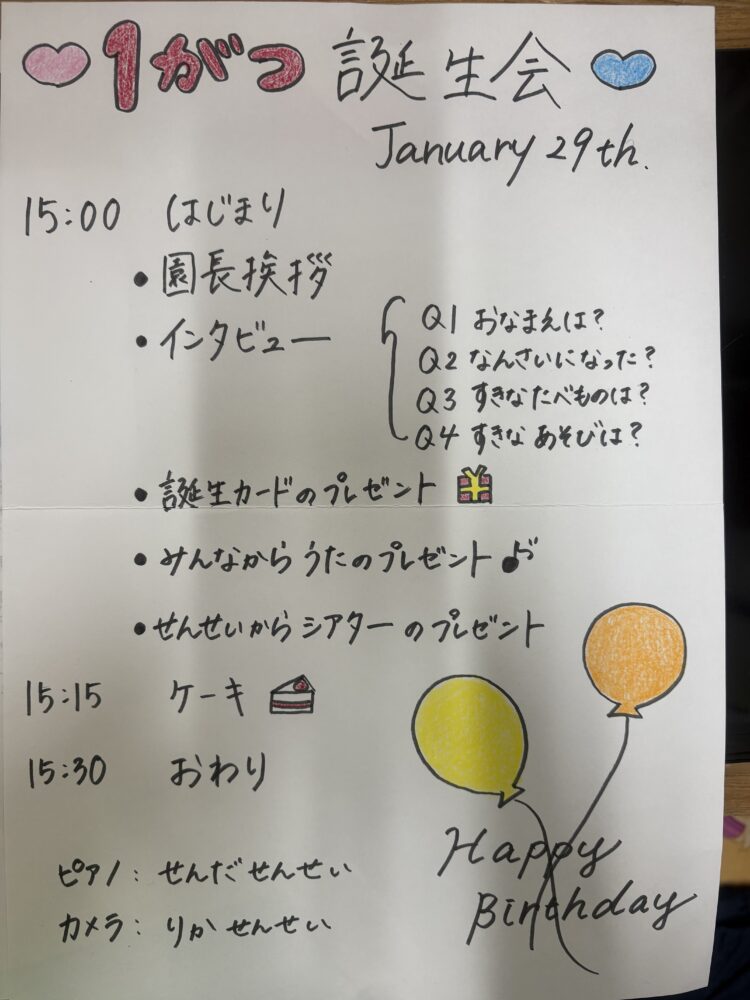 1がつ 誕生会
January 29th.
15:00 はじまり
・園長挨拶
・インタビュー
Q1 おなまえは?
Q2 なんさいになった?
Q3 すきなたべものは?
Q4 すきな あそびは?
・誕生カードのプレゼント
・みんなから うたのプレゼント
・せんせいから シアターのプレゼント
15:15 ケーキ
15:30 おわり
ピアノ: せんだせんせい
カメラ: りかせんせい
Happy
Birthday